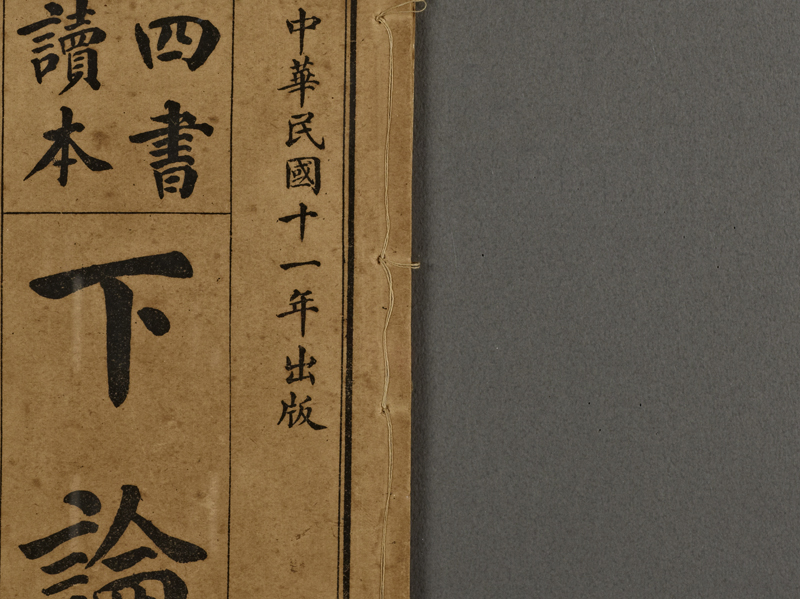 中華民國十一年出版
四書
讀本
下論